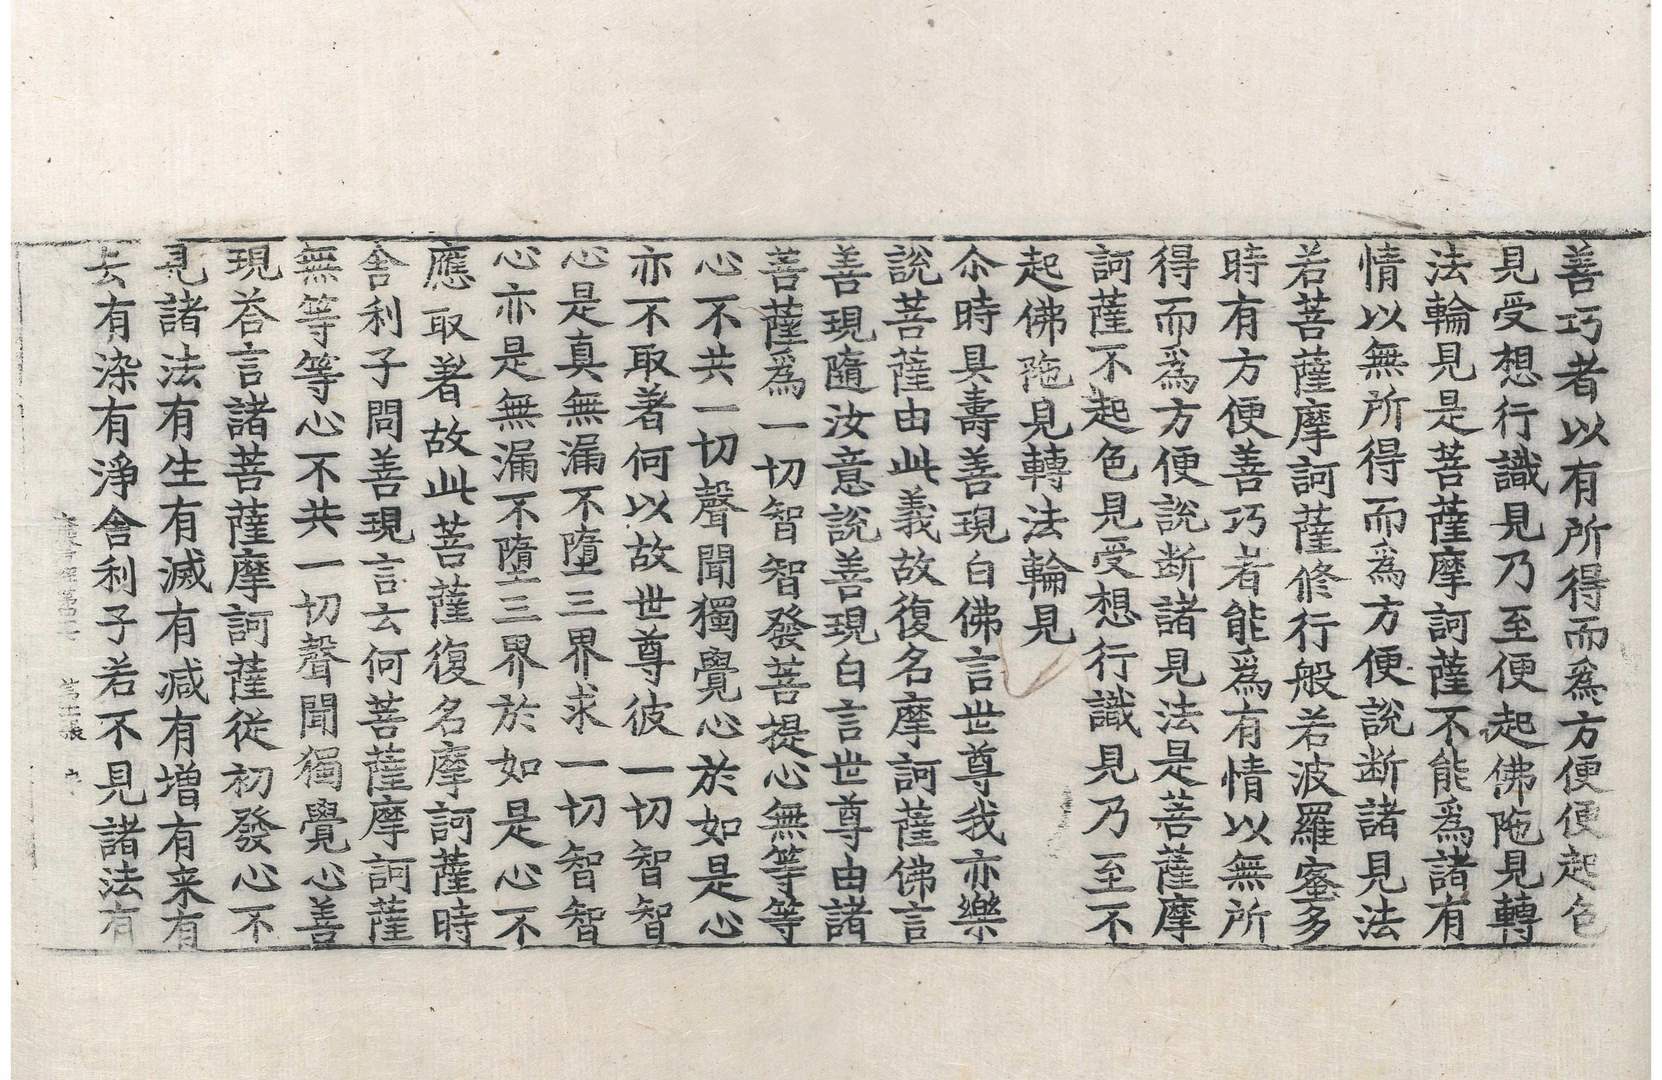 善巧者以有所得而爲方便便起色
見受想行識見乃至便起佛陁見轉
法輪見是菩薩摩訶薩不能爲諸有
情以無所得而爲方便說断諸見法
若菩薩摩訶薩修行般若波羅蜜多
時有方便善巧者能爲有情以無所
得而爲方便說断諸見法是菩薩摩
訶薩不起色見受想行識見乃至不
起佛陁見轉法輪見
尒時具壽善現白佛言世尊我亦樂
說菩薩由此義故復名摩訶薩佛言
善現隨汝意說善現白言世尊由諸
菩薩爲一切智智發菩提心無等等
心不共一切聲聞獨覺心於如是心
亦不取著何以故世尊彼一切智智
心是真無漏不墮三界求一切智智
心亦是無漏不墮三界於如是心不
應取著故此菩薩復名摩訶薩時
舍利子問善現言云何菩薩摩訶薩
無等等心不共一切聲聞獨覺心善
現荅言諸菩薩摩訶薩從初發心不
見諸法有生有滅有减有增有来有
去有染有淨舍利子若不見諸法有